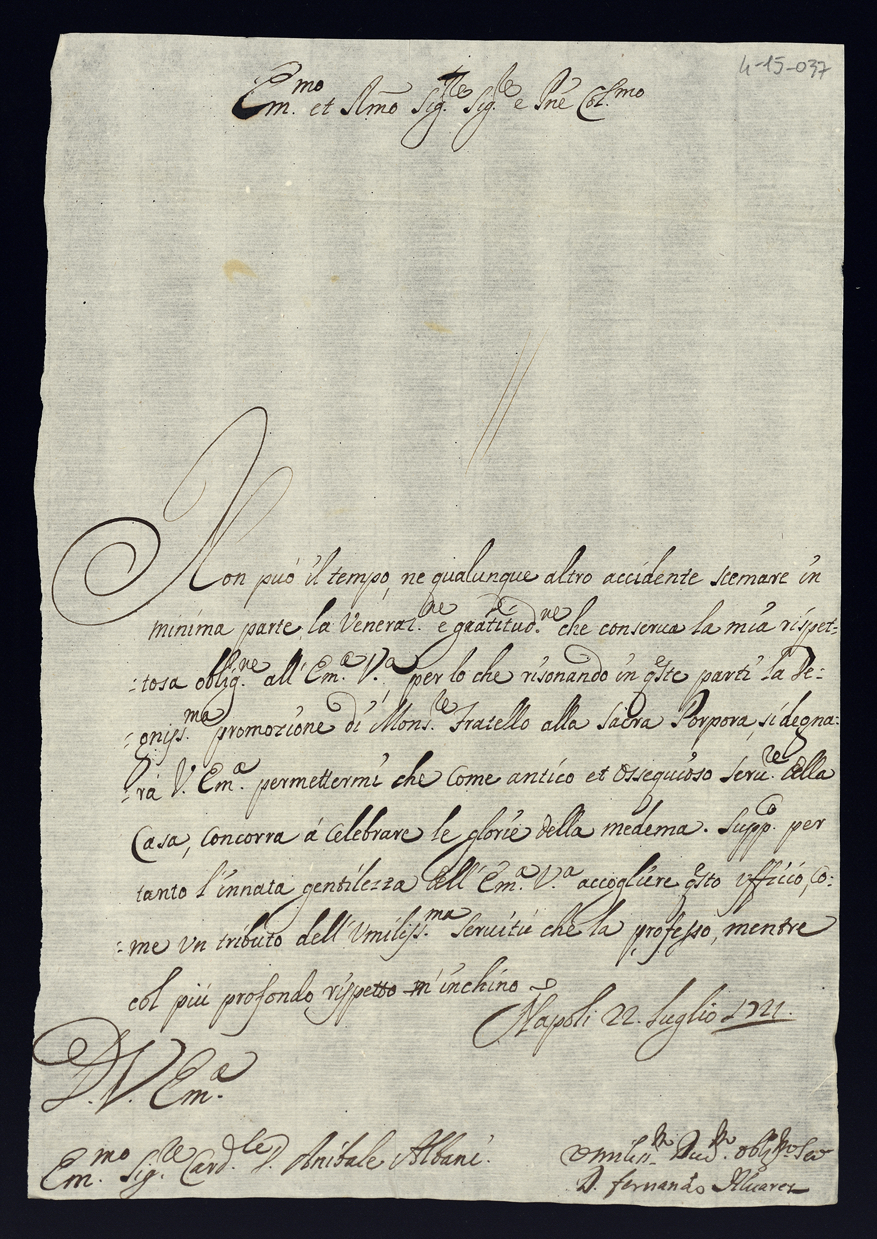 4-15-037
Em.mo et Rmo Sig.re Sig.re e Pne Col.mo
Non può il tempo, ne qualunque altro accidente scemare in
minima parte, la Venerat.ne e gratitud.ne che conserua la mia rispet:
:tosa oblig.ne all' Em.a V.a per lo che risonando in qste parti la De:
:gniss.ma promozione di Mons.re Fratello alla Sacra Porpora, si degna:
:rá V. Em.a permettermi che come antico et ossequioso Seru.re della
Casa, concorra á celebrare le glorie della medema. Supp.co per
tanto l'innata gentilezza dell' Em.a V.a accogliere qsto vfficio, co:
:me vn tributo dell' Vmiliss.ma Seruitú che la professo, mentre
col piú profondo rispetto m'inchino
Napoli 22. Luglio 1721.
D. V. Em.a
Em.mo Sig.re Card.le D. Anibale Albani.
Vmiliss.mo obblig.mo Ser
D. Fernando Alvarez